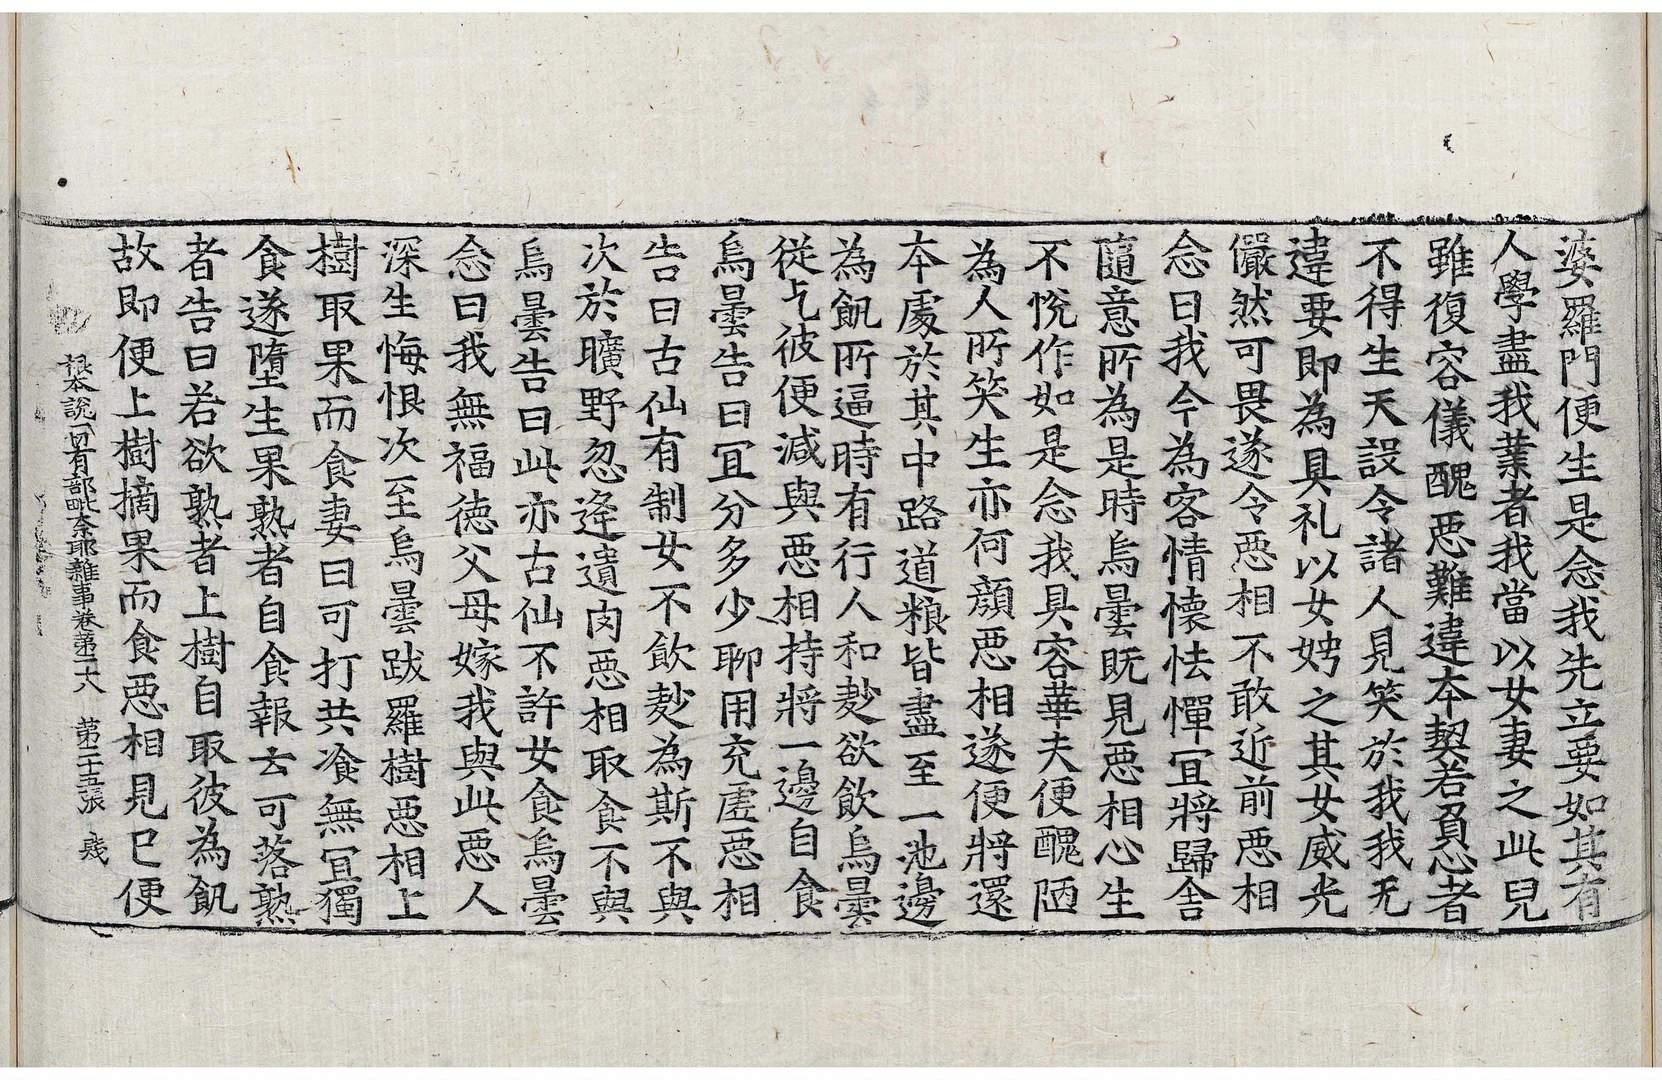 婆羅門便生是念我先立要如其有
人學盡我業者我當以女妻之此兒
雖復容儀醜惡難違本契若負心者
不得生天設令諸人見笑於我我无
違要即為具礼以女娉之其女威光
儼然可畏遂令惡相不敢近前惡相
念曰我今為客情懷怯憚冝將歸舍
隨意所為是時烏曇既見惡相心生
不悅作如是念我具容華夫便醜陋
為人所笑生亦何顏惡相遂便將還
本處於其中路道粮皆盡至一池邊
為飢所逼時有行人和麨欲飲烏曇
從乞彼便減與惡相持將一邊自食
烏曇告曰冝分多少聊用充虛惡相
告曰古仙有制女不飲麨為斯不與
次於曠野忽逢遺肉惡相取食不與
烏曇告曰此亦古仙不許女食烏曇
念曰我無福德父母嫁我與此惡人
深生悔恨次至烏曇跋羅樹惡相上
樹取果而食妻曰可打共飡無冝獨
食遂墮生果熟者自食報云可落熟
者告曰若欲熟者上樹自取彼為飢
故即便上樹摘果而食惡相見已便
根本說一切有部毗奈耶雜事卷第二十八 第二十五張 㡬